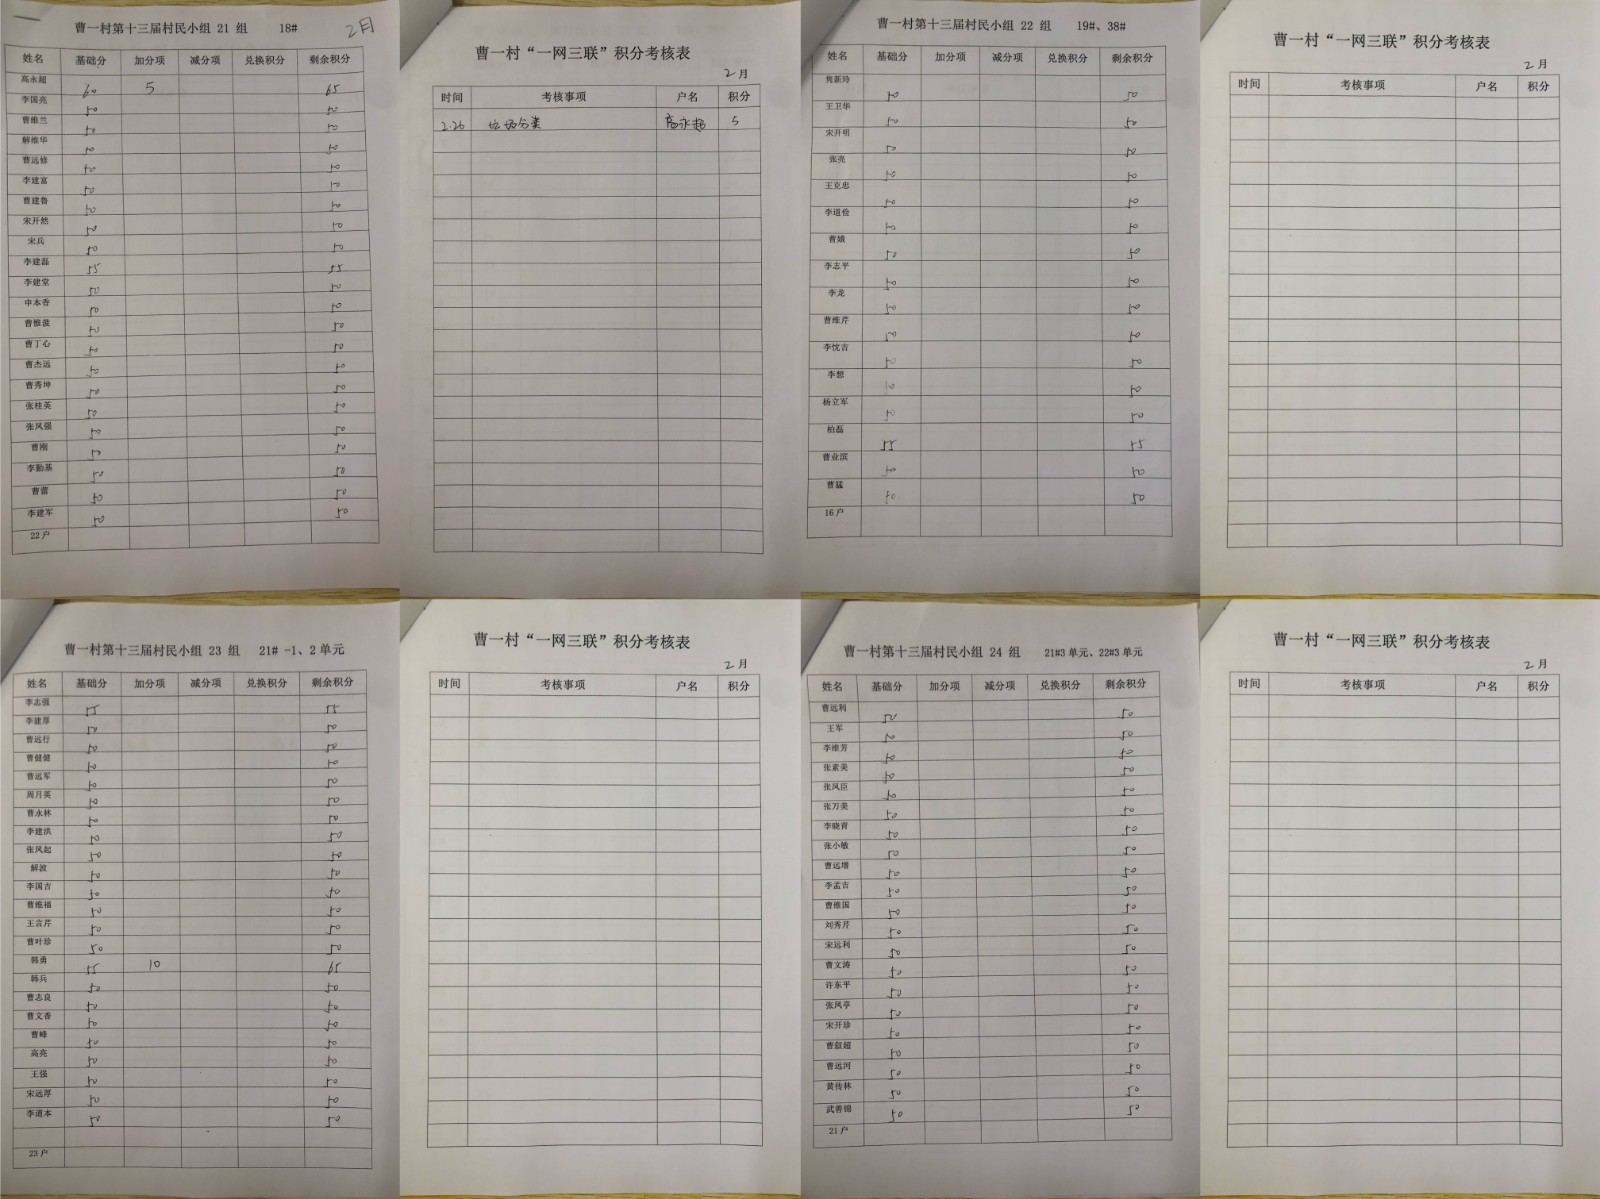 曹一村第十三届村民小组 21 组 18# 2月
姓名 基础分 加分项 减分项 兑换积分 剩余积分
高永超 60 5 65
李国亮 50 50
曹维兰 50 50
解维华 50 50
曹远修 50 50
李建富 50 50
曹建鲁 50 50
宋开然 50 50
宋兵 50 50
李建磊 55 55
李建堂 50 50
申本香 50 50
曹惟波 50 50
曹丁心 50 50
曹杰远 50 50
曹秀坤 50 50
张桂英 50 50
张凤强 50 50
曹刚 50 50
李勤基 50 50
曹蕾 50 50
李建军 50 50
22户
曹一村“一网三联”积分考核表
2月
时间 考核事项 户名 积分
2.26 垃圾分类 高永超 5
曹一村第十三届村民小组 22 组 19#、38#
姓名 基础分 加分项 减分项 兑换积分 剩余积分
隽新玲 50 50
王卫华 50 50
宋开明 50 50
张亮 50 50
王克忠 50 50
李道俭 50 50
曹娥 50 50
李志平 50 50
李龙 50 50
曹维芹 50 50
李忱吉 50 50
李想 50 50
杨立军 50 50
柏磊 55 55
曹业滨 50 50
曹猛 50 50
16户
曹一村“一网三联”积分考核表
2月
时间 考核事项 户名 积分
曹一村第十三届村民小组 23 组 21# -1、2单元
姓名 基础分 加分项 减分项 兑换积分 剩余积分
李志强 55 55
李建厚 50 50
曹远行 50 50
曹健健 50 50
曹远军 50 50
周月英 50 50
曹永林 50 50
李建洪 50 50
张凤起 50 50
解波 50 50
李国吉 50 50
曹维福 50 50
王言芹 50 50
曹叶珍 50 50
韩勇 55 10 65
韩兵 50 50
曹志良 50 50
曹文香 50 50
曹峰 50 50
高亮 50 50
王强 50 50
宋远厚 50 50
李道本 50 50
23户
曹一村“一网三联”积分考核表
2月
时间 考核事项 户名 积分
曹一村第十三届村民小组 24 组 21#3单元、22#3单元
姓名 基础分 加分项 减分项 兑换积分 剩余积分
曹远利 50 50
王军 50 50
李维芳 50 50
张素美 50 50
张凤臣 50 50
张万美 50 50
李晓霄 50 50
张小敏 50 50
曹远增 50 50
李孟吉 50 50
曹维国 50 50
刘秀芹 50 50
宋远利 50 50
曹文涛 50 50
许东平 50 50
张凤亭 50 50
宋开珍 50 50
曹叙超 50 50
曹远河 50 50
黄传林 50 50
武善锦 50 50
21户
曹一村“一网三联”积分考核表
2月
时间 考核事项 户名 积分